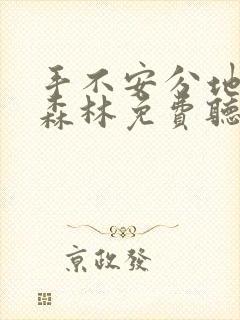 手不安分地
森林免费聽
京政發